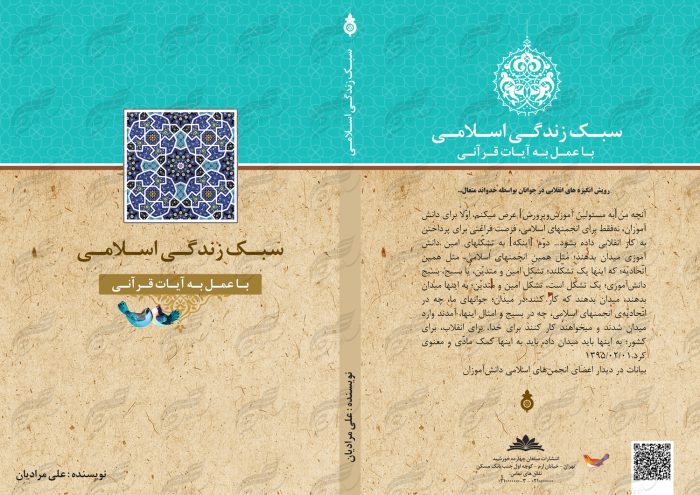 سبک زندگی اسلامی
با عمل به آیات قرآنی
نویسنده : علی مرادیان
سبک زندگی اسلامی
نویسنده : علی مرادیان
سبک زندگی اسلامی
با عمل به آیات قرآنی
رویش انگیزه های انقلابی در جوانان بواسطه خدواند متعال..
آنچه من [به مسئولین آموزش‌وپرورش] عرض میکنم، اوّلا برای دانش
آموزان، نه‌فقط برای انجمنهای اسلامی، فرصت فراغتی برای پرداختن
به کار انقلابی داده بشود... دوّم [اینکه] به تشکلهای امین دانش
آموزی میدان بدهند؛ مثل همین انجمنهای اسلامی، مثل همین
اتحادیّه؛ که اینها یک تشکلند؛ تشکل امین و متدیّن، یا بسیج، بسیج
دانش‌آموزی؛ یک تشکل است، تشکل امین و متدیّن؛ به اینها میدان
بدهند، میدان بدهند که کار کنند؛ در میدان؛ جوانهای ما، چه در
اتحادیّه‌ی انجمنهای اسلامی، چه در بسیج و امثال اینها، آمدند وارد
میدان شدند و میخواهند کار کنند برای خدا، برای انقلاب، برای
کشور؛ به اینها باید میدان داد، باید به اینها کمک مادّی و معنوی
کرد. ۱۳۹۵/۰۲/۰۱
بیانات در دیدار اعضای انجمن‌های اسلامی دانش‌آموزان
انتشارات مبلغان چهارده خورشید
تهران - خیابان ارم - کوچه اول جنب بانک مسکن
تلفن های تماس: